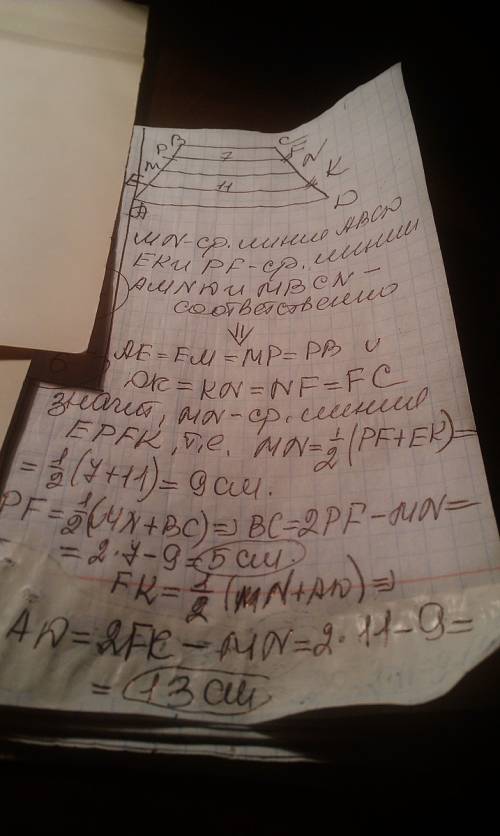 B C
P 7 F
M N
E 11 K
A D
MN-ср. линия ABCD
EK и PF-ср. линии
AMND и MBCN -
соответственно
⇓
AE = EM = MP = PB и
DK = KN = NF = FC
значит, MN-ср. линия
EPFK, т.е. MN = 1/2 (PF+EK) =
= 1/2 (7+11) = 9 см.
PF = 1/2 (MN+BC) ⇒ BC = 2PF - MN =
= 2·7-9 = 5 см.
EK = 1/2 (MN+AD) ⇒
AD = 2EK - MN = 2·11-9 =
= 13 см